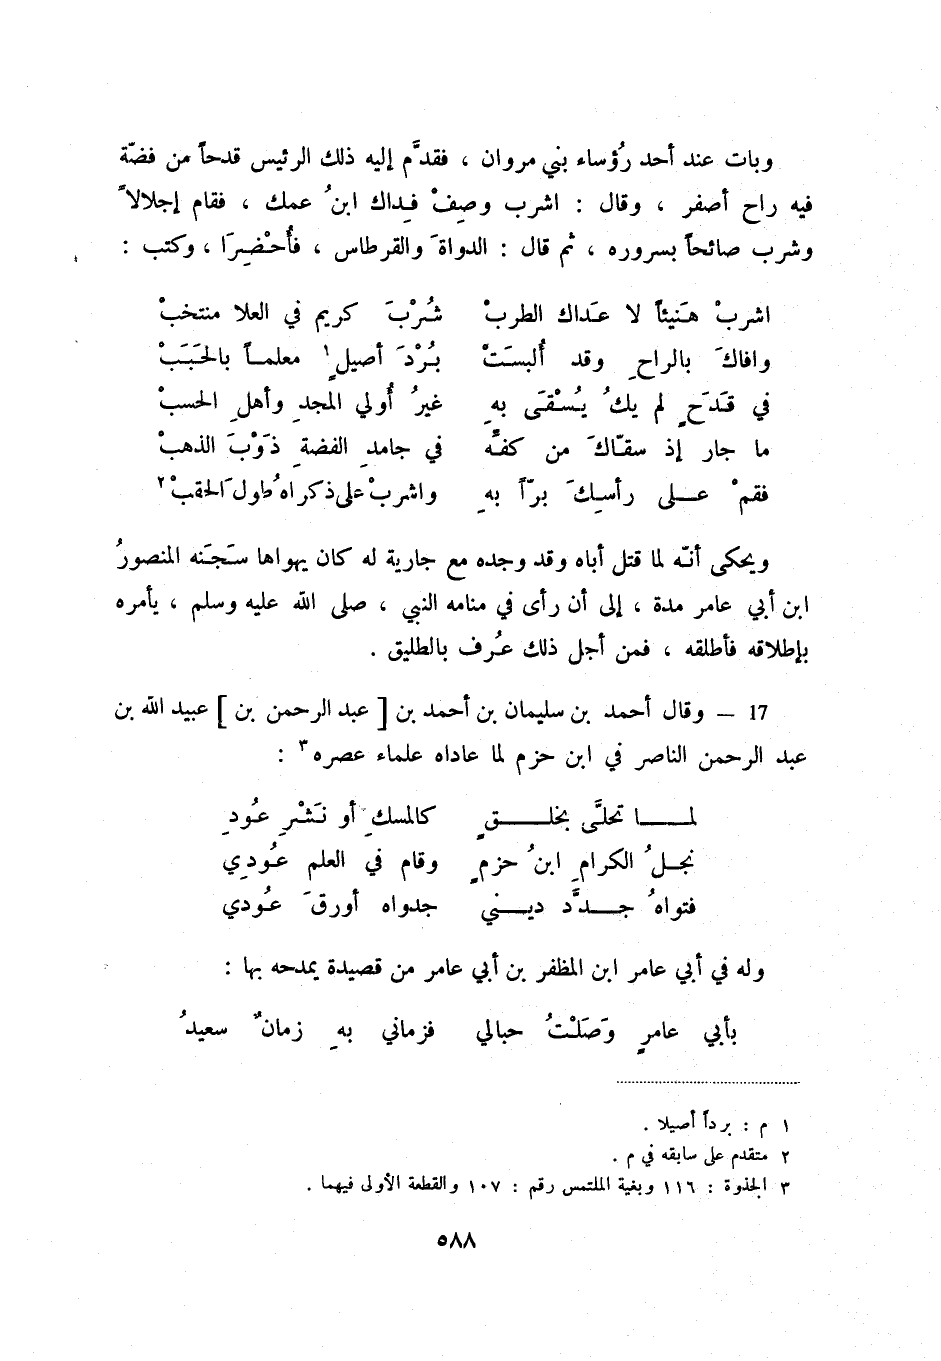 وبات عند أحد رُؤساء بني مروان ، فقدَّم إليه ذلك الرئيس قدحاً من فضّة
فيه راح أصفر ، وقال : اشرب وصِفْ فِداك ابنُ عمك ، فقام إجلالاً
وشرب صائحاً بسروره ، ثم قال : الدواةَ والقرطاس ، فأُحْضِرَا ، وكتب :
اشربْ هَنيئاً لا عَداك الطربْ شُرْبَ كريم في العلا منتخبْ
وافاكَ بالراحِ وقد أُلبسَتْ بُرْدَ أصيلٍ١ معلماً بالحَبَبْ
في قَدَحٍ لم يكُ يُسْقَى بهِ غيرُ أُولي المجدِ وأهلِ الحسبْ
ما جار إذ سقّاكَ من كفّه في جامدِ الفضةِ ذَوْبَ الذهبْ
فقمْ على رأسِكَ برّاً بهِ واشربْ على ذكراهُ طولَ الحقبْ٢
ويحكى أنّه لما قتل أباه وقد وجده مع جارية له كان يهواها سَجَنه المنصورُ
ابن أبي عامر مدة ، إلى أن رأى في منامه النبي ، صلى الله عليه وسلم ، يأمره
بإطلاقه فأطلقه ، فمن أجل ذلك عُرف بالطليق .
17 – وقال أحمد بن سليمان بن أحمد بن [ عبد الرحمن بن ] عبيد الله بن
عبد الرحمن الناصر في ابن حزم لما عاداه علماء عصره٣ :
لمـــا تحلَّى بخلــقٍ كالمسكِ أو نَشْرِ عُودِ
نجلُ الكرامِ ابنُ حزمٍ وقام في العلم عُودِي
فتواهُ جــدَّد ديــني جدواه أورقَ عُودي
وله في أبي عامر ابن المظفر بن أبي عامر من قصيدة يمدحه بها :
بأبي عامرٍ وَصَلْتُ حبالي فزماني بهِ زمانٌ سعيدُ
١ م : برداً أصيلا .
٢ متقدم على سابقه في م .
٣ الجذوة : ١١٦ وبغية الملتمس رقم : ١٠٧ والقطعة الأولى فيهما .
٥٨٨